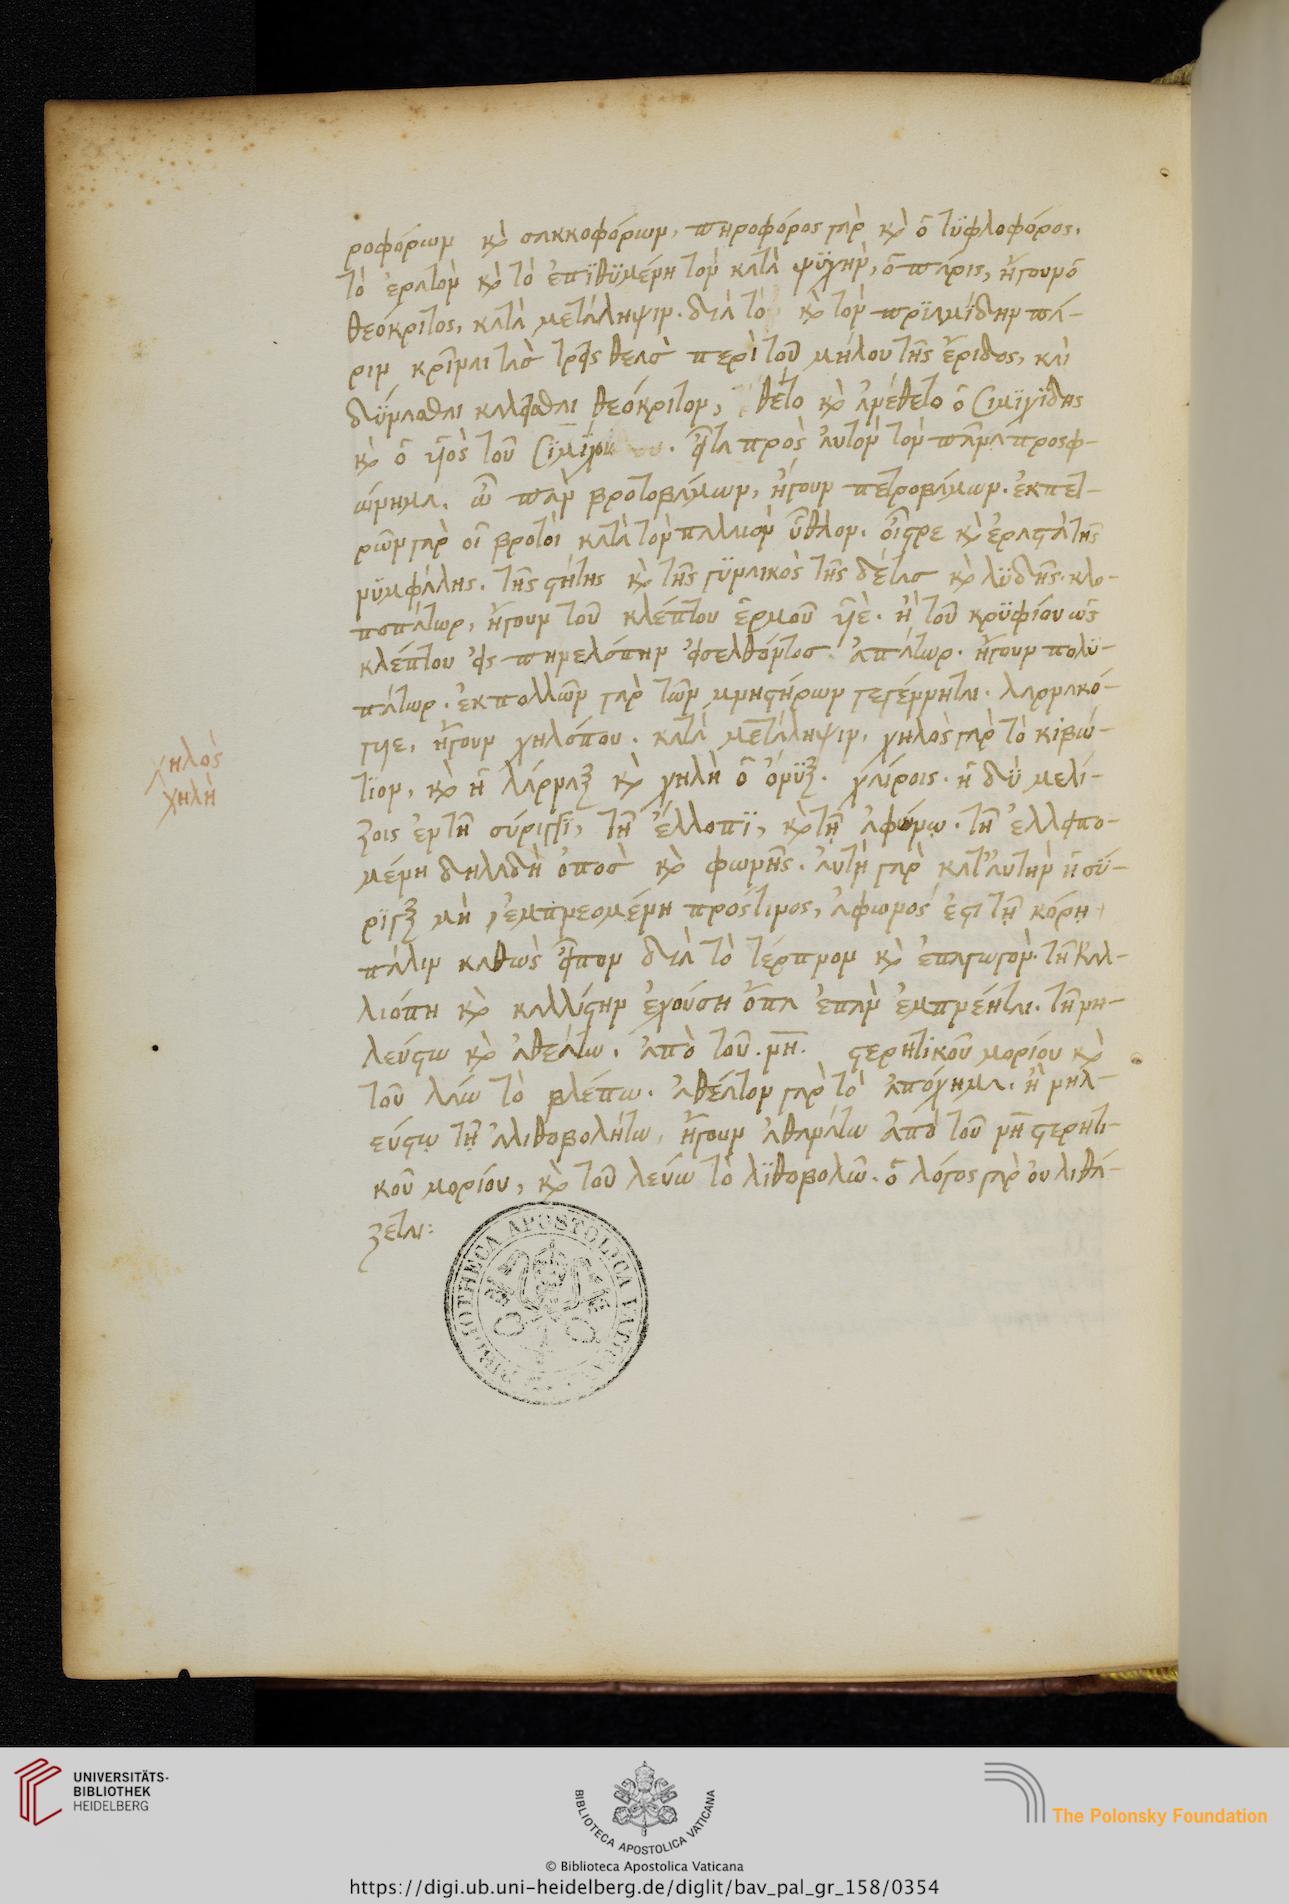 ροφόρων κὸ σακκοφόρων, πηροφόρος γὰρ κὸ ὁ τϋφλοφόρος.
τὸ ἐρατὸν κὸ τὸ ἐπϊθϋμένη τὸν κατὰ ψϋχὴν, ὁ πάρις, ἤγουν ὁ
θεόκριτος, κατὰ μετάληψιν. διὰ τὸ κὸ τὸν πρϊαμίδην πά-
ριν κρῖναι τὰσ τρεῖς θεὰσ περὶ τοῦ μήλου τῆς ἔριδος, καὶ
δϋνασθαι καλεῖσθαι θεόκριτον, θέτο κὸ ἀνέθετο ὁ Σιμϊχίδης
κὸ ὁ ϋἱὸς τοῦ Σϊμϊχί . εἶτα πρὸς ἀυτὸν τὸν πᾶνα προσφ-
ώνημα. ὦ πὰν βροτοβάμων, ἤγουν πετροβάμων. ἐκ πετ-
ρῶν γὰρ οἱ βροτοὶ κατὰ τὸν παλαιὸν ὕθλον. οἶστρε κὸ ἐραστὰ τῆς
νϋμφάλης. τῆς στήτης κὸ τῆς γϋναικὸς τῆς δέτας κὸ λϋδῆς. κλο-
ποπάτωρ, ἤγουν τοῦ κλέπτου ἑρμοῦ ϋἱὲ. ἢ τοῦ κρϋφίου ὡς
κλέπτου εἰς πηνελόπην εἰσελθόντος. ἀπάτωρ. ἤγουν πολϋ-
πάτωρ. ἐκ πολλῶν γὰρ τῶν μνηστήρων γεγέννηται. λαρνακό-
γϋιε, ἤγουν χηλόπου. κατὰ μετάληψιν, χηλὸς γὰρ τὸ κιβώ-
τϊον, κὸ ἡ λάρναξ κὸ χηλὴ ὁ ὄνϋξ. χαίροις. ἡδὺ μελί-
ζοις ἐν τῆ σύριγγϊ, τῆ ἔλλοπϊ, κὸ τῆ ἀφώνω. τῆ ἐλλειπο-
μένη δηλαδὴ ὀπὸσ κὸ φωνῆς. ἀυτὴ γὰρ κατ' ἀυτὴν ἡ σϋ-
ριγξ μὴ ἐμπνεομένη πρόστινος, ἄφωνος ἐστι τῆ κόρη
πάλιν καθὼς εἶπον διὰ τὸ τέρπνον κὸ ἐπαγωγὸν. τῆ Καλ-
λιόπη κὸ καλλίστην ἐχούση ὄπα ἐπὰν ἐμπνέηται. τῆ νη-
λεύστω κὸ ἀθεάτω. ἀπὸ τοῦ. νη. στερητικοῦ μορίου κὸ
τοῦ λάω τὸ βλέπω. ἀθέατον γὰρ τὸ ἀπόχημα. ἢ νηλ-
εύστω τῆ ἀλιθοβολήτω, ἤγουν ἀθανάτω ἀπὸ τοῦ νη στερητι-
κοῦ μορίου, κὸ τοῦ λεύω τὸ λϊθοβολῶ. ὁ λόγος γὰρ ὀυ λιθά-
ζεται:
χηλὸς
χηλὴ
BIBLIOTHECA APOSTOLICA VATICANA
UNIVERSITÄTS-
BIBLIOTHEK
HEIDELBERG
BIBLIOTECA APOSTOLICA VATICANA
The Polonsky Foundation
© Biblioteca Apostolica Vaticana
https://digi.ub.uni-heidelberg.de/diglit/bav_pal_gr_158/0354